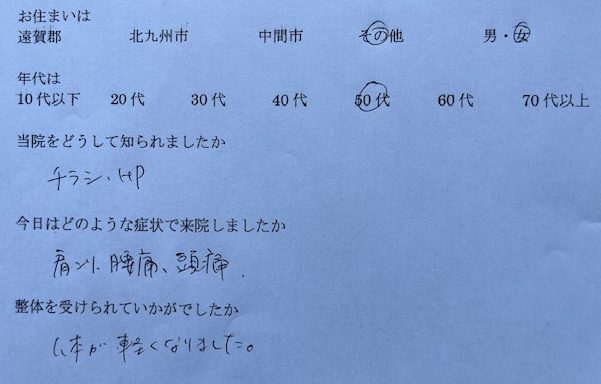 お住まいは
遠賀郡 北九州市 中間市 その他 男・女
年代は
10代以下 20代 30代 40代 50代 60代 70代以上
当院をどうして知られましたか
チラシ、HP
今日はどのような症状で来院しましたか
肩こり、腰痛、頭痛、
整体を受けられていかがでしたか
体が軽くなりました。